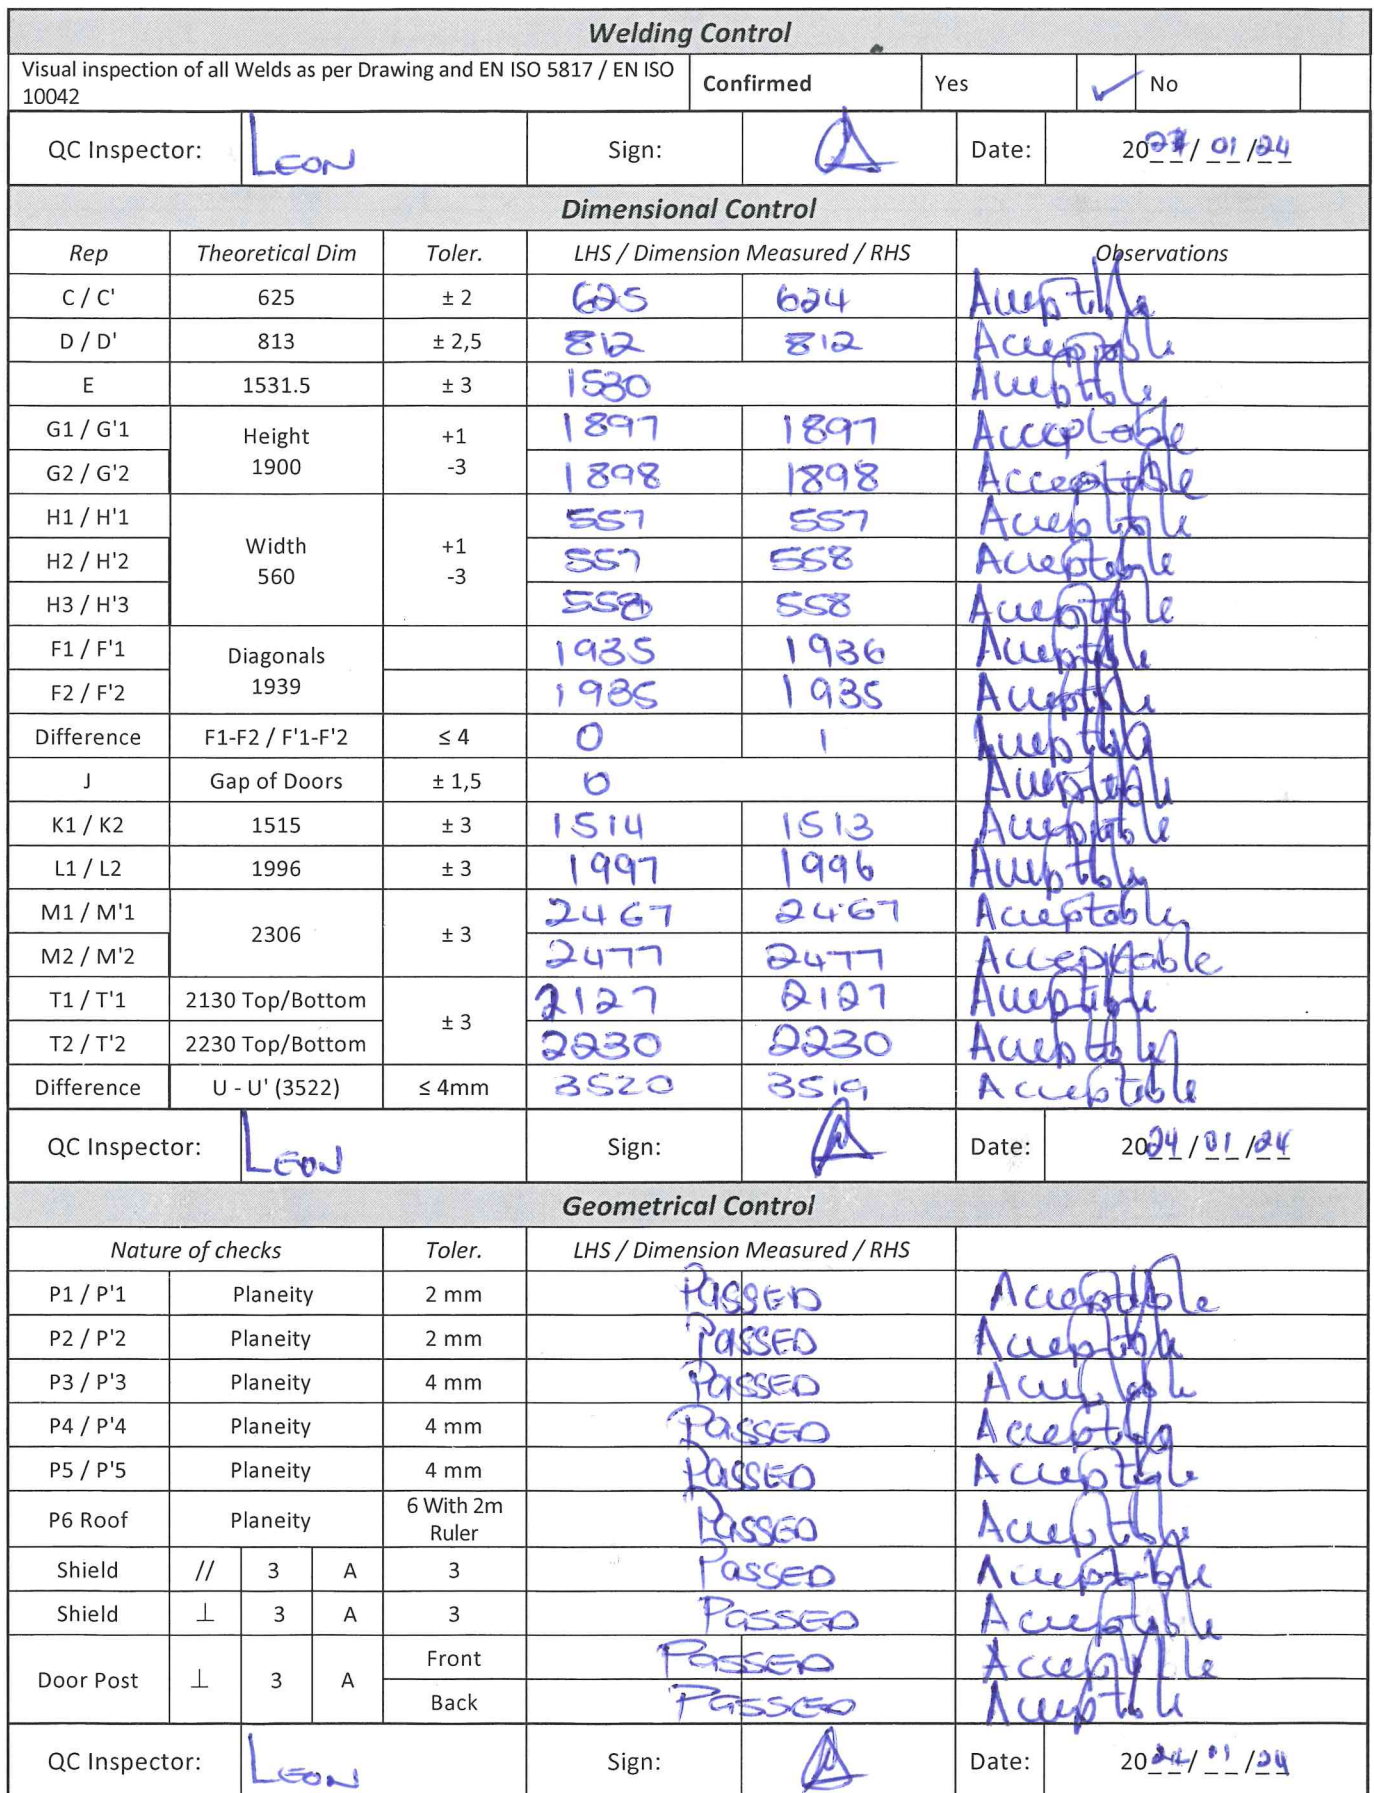 Welding Control
Visual inspection of all Welds as per Drawing and EN ISO 5817 / EN ISO 10042 Confirmed Yes ✓ No
QC Inspector: LEON Sign: Date: 20 / 01 /24
Dimensional Control
Rep Theoretical Dim Toler. LHS / Dimension Measured / RHS Observations
C / C' 625 ± 2 625 624 Acceptable
D / D' 813 ± 2,5 812 812 Acceptable
E 1531.5 ± 3 1530 Acceptable
G1 / G'1 Height 1900 +1 -3 1897 1897 Acceptable
G2 / G'2 1898 1898 Acceptable
H1 / H'1 Width 560 +1 -3 557 557 Acceptable
H2 / H'2 557 558 Acceptable
H3 / H'3 558 558 Acceptable
F1 / F'1 Diagonals 1939 1935 1936 Acceptable
F2 / F'2 1935 1935 Acceptable
Difference F1-F2 / F'1-F'2 ≤ 4 0 1 Acceptable
J Gap of Doors ± 1,5 0 Acceptable
K1 / K2 1515 ± 3 1514 1513 Acceptable
L1 / L2 1996 ± 3 1997 1996 Acceptable
M1 / M'1 2306 ± 3 2467 2467 Acceptable
M2 / M'2 2477 2477 Acceptable
T1 / T'1 2130 Top/Bottom ± 3 2127 2127 Acceptable
T2 / T'2 2230 Top/Bottom 2230 2230 Acceptable
Difference U - U' (3522) ≤ 4mm 3520 3519 Acceptable
QC Inspector: LEON Sign: Date: 2024 / 01 /24
Geometrical Control
Nature of checks Toler. LHS / Dimension Measured / RHS
P1 / P'1 Planeity 2 mm PASSED Acceptable
P2 / P'2 Planeity 2 mm PASSED Acceptable
P3 / P'3 Planeity 4 mm PASSED Acceptable
P4 / P'4 Planeity 4 mm PASSED Acceptable
P5 / P'5 Planeity 4 mm PASSED Acceptable
P6 Roof Planeity 6 With 2m Ruler PASSED Acceptable
Shield // 3 A 3 PASSED Acceptable
Shield ⊥ 3 A 3 PASSED Acceptable
Door Post ⊥ 3 A Front PASSED Acceptable
Back PASSED Acceptable
QC Inspector: LEON Sign: Date: 2024/ 01 /24